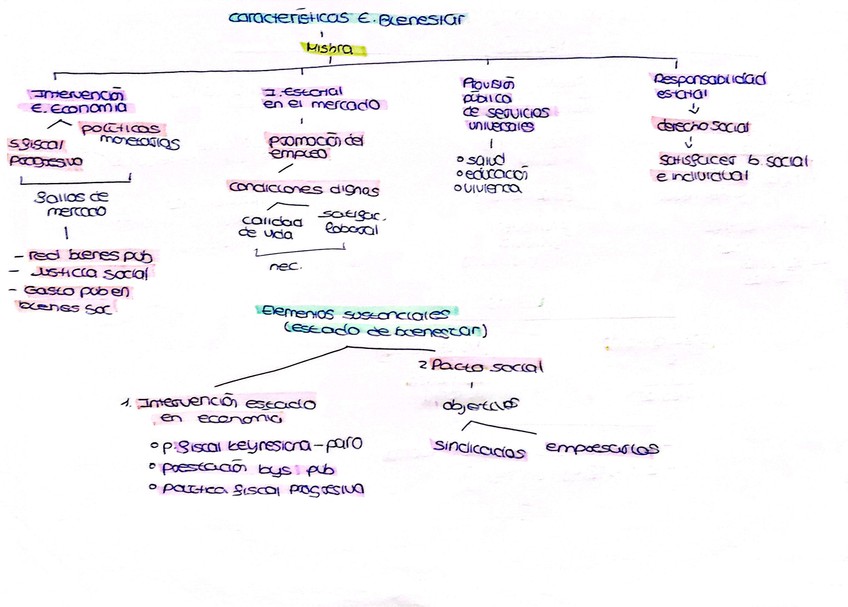 características E. Bienestar
Mishra
Intervención
E. Economía
s.fiscal
progresivo
políticas
monetarias
fallos de
mercado
- red bienes pub
- Justicia social
- Gasto pub en
bienes soc
I. Estatal
en el mercado
promoción del
empleo
condiciones dignas
calidad
de vida
satisfac.
laboral
nec.
Provisión
pública
de servicios
universales
o salud
o educación
o vivienda
Responsabilidad
estatal
derecho social
satisfacer b. social
e individual
Elementos sustanciales
(estado de bienestar)
1. Intervención estado
en economía
o p. fiscal keynesiana - paro
o prestación bys pub
o política fiscal progresiva
2 Pacto social
objetivos
sindicatos
empresarios